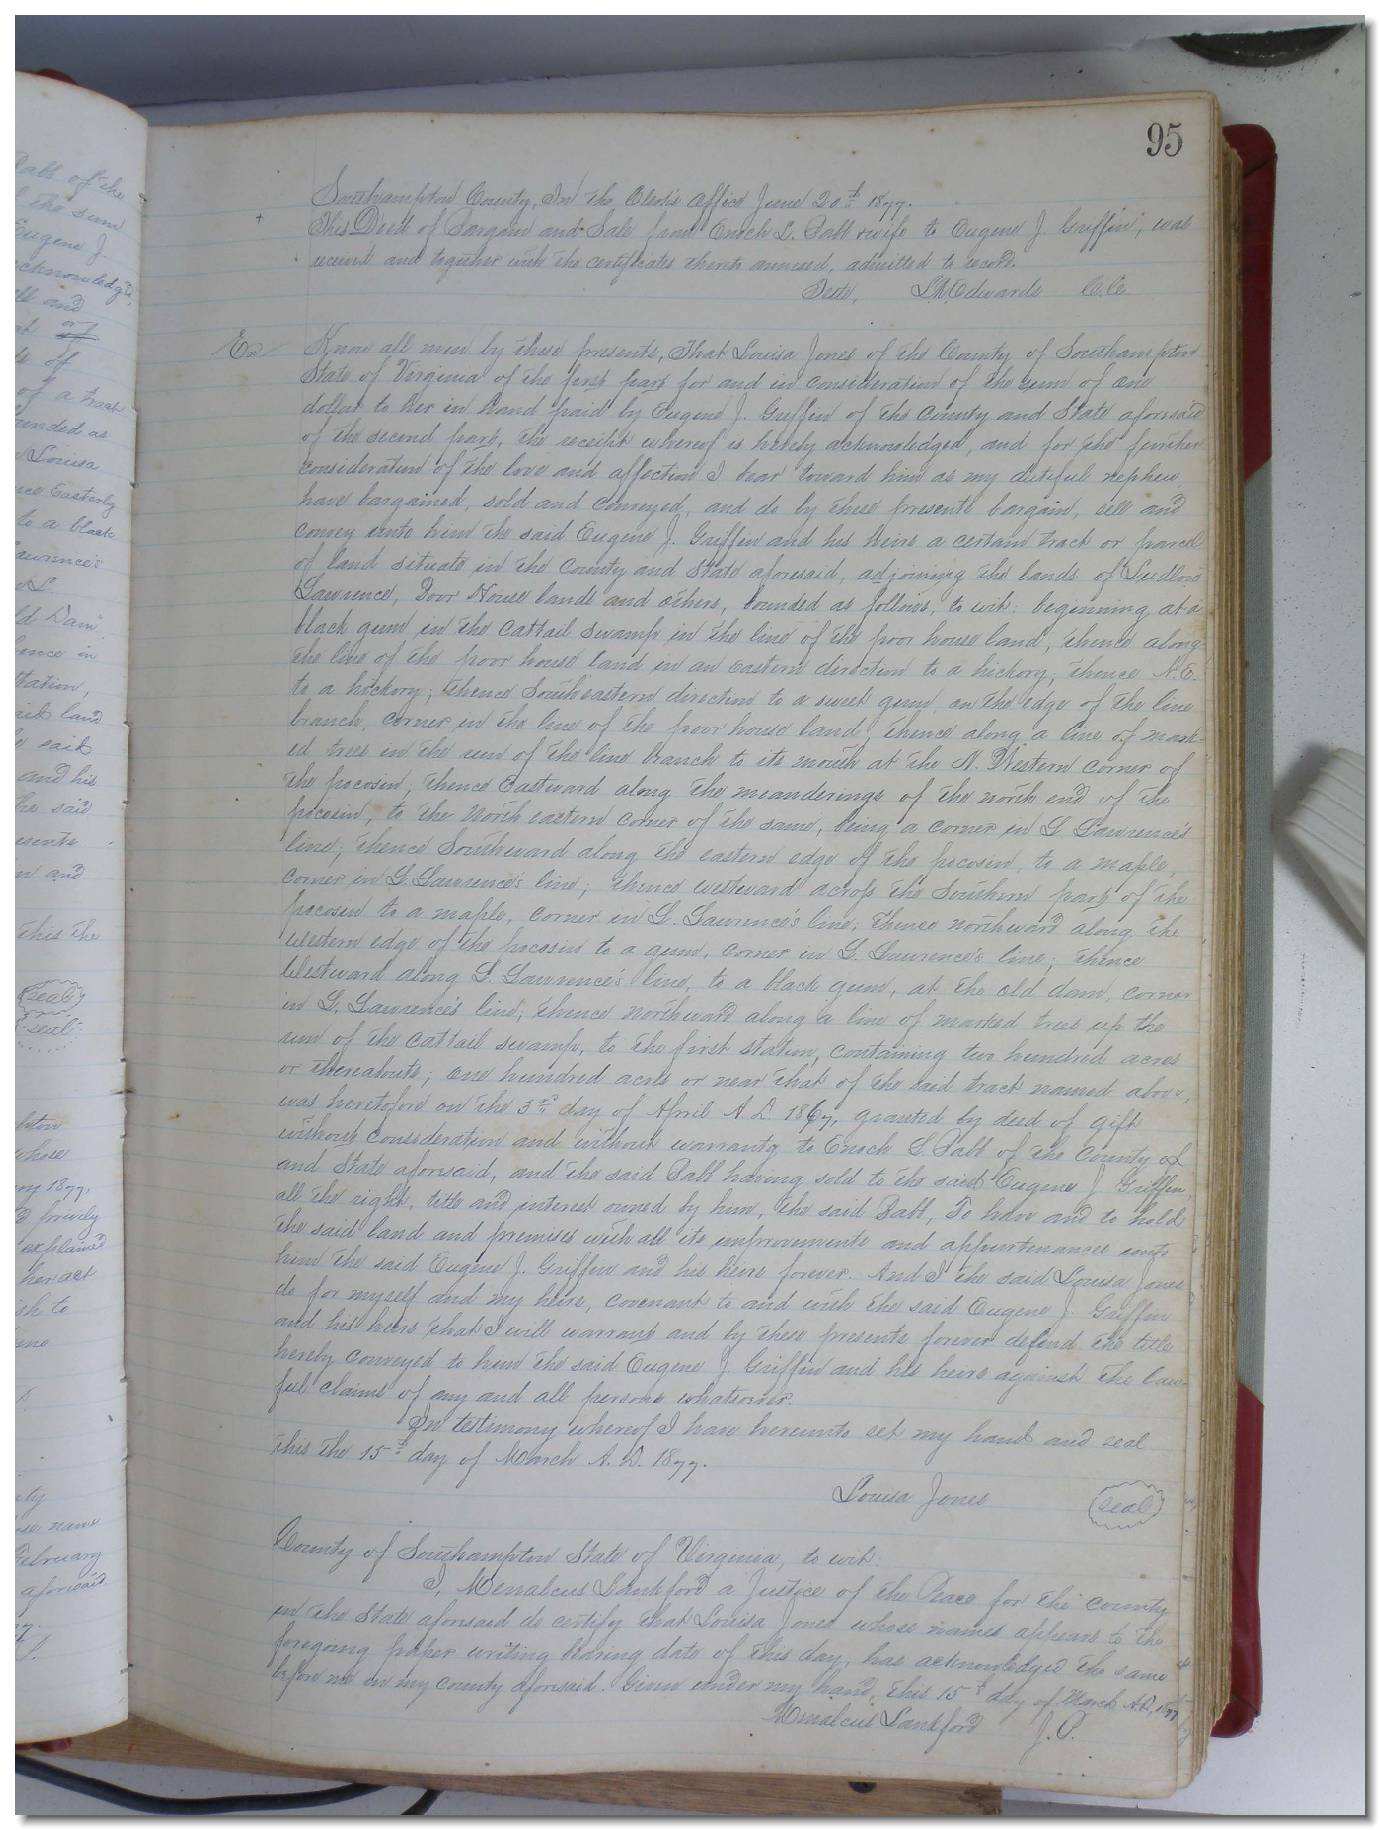 95
Southampton County, In the Clerk's Office June 20th 1877.
This Deed of Bargain and Sale from Enoch L. Babb & wife to Eugene J. Griffin, was
received and together with the certificates thereto annexed, admitted to record.
Teste, L.R.Edwards C.C.
Know all men by these presents, That Louisa Jones of the County of Southampton
State of Virginia of the first part for and in consideration of the sum of one
dollar to her in hand paid by Eugene J. Griffin of the County and State aforesaid
of the second part, the receipt whereof is hereby acknowledged, and for the further
consideration of the love and affection I bear toward him as my dutiful nephew,
have bargained, sold and conveyed, and do by these presents bargain, sell and
convey unto him the said Eugene J. Griffin and his heirs a certain tract or parcel
of land situate in the County and State aforesaid, adjoining the lands of
Lawrence, Poor House lands and others, bounded as follows, to wit: beginning at a
black gum in the cattail swamp in the line of the poor house land, thence along
the line of the poor house land in an eastern direction to a hickory; thence N.E.
to a hickory; thence Southeastern direction to a sweet gum on the edge of the line
branch, corner in the line of the poor house land; thence along a line of mark-
ed trees in the run of the line branch to its mouth at the N. Western corner of
the pocosin; thence Eastward along the meanderings of the north end of the
pocosin, to the North eastern corner of the same, being a corner in L. Lawrence's
line; thence Southward along the eastern edge of the pocosin, to a maple,
corner in L. Lawrence's line; thence westward across the Southern part of the
pocosin to a maple, corner in L. Lawrence's line; thence northward along the
western edge of the pocosin to a gum, corner in L. Lawrence's line; thence
Westward along L. Lawrence's line, to a black gum, at the old dam, corner
in L. Lawrence's line; thence northward along a line of marked trees up the
run of the cattail swamp, to the first station, containing two hundred acres
or thereabouts; one hundred acres or near that of the said tract named above,
was heretofore on the 3rd day of April A.D. 1867, granted by deed of gift
without consideration and without warranty to Enoch L. Babb of the County of
and State aforesaid, and the said Babb having sold to the said Eugene J. Griffin
all the right, title and interest owned by him, the said Babb, To have and to hold
the said land and premises with all its improvements and appurtenances unto
him the said Eugene J. Griffin and his heirs forever. And I the said Louisa Jones
do for myself and my heirs, covenant to and with the said Eugene J. Griffin
and his heirs that I will warrant and by these presents forever defend the title
hereby conveyed to him the said Eugene J. Griffin and his heirs against the law-
ful claims of any and all persons whatsoever.
In testimony whereof I have hereunto set my hand and seal
this the 15th day of March A.D. 1877.
Louisa Jones seal
County of Southampton State of Virginia, to wit:
I, Menalcus Lankford a Justice of the Peace for the county
in the State aforesaid do certify that Louisa Jones whose names appears to the
foregoing paper writing bearing date of this day, has acknowledged the same
before me in my county aforesaid. Given under my hand, this 15th day of March A.D. 1877
Menalcus Lankford J.P.